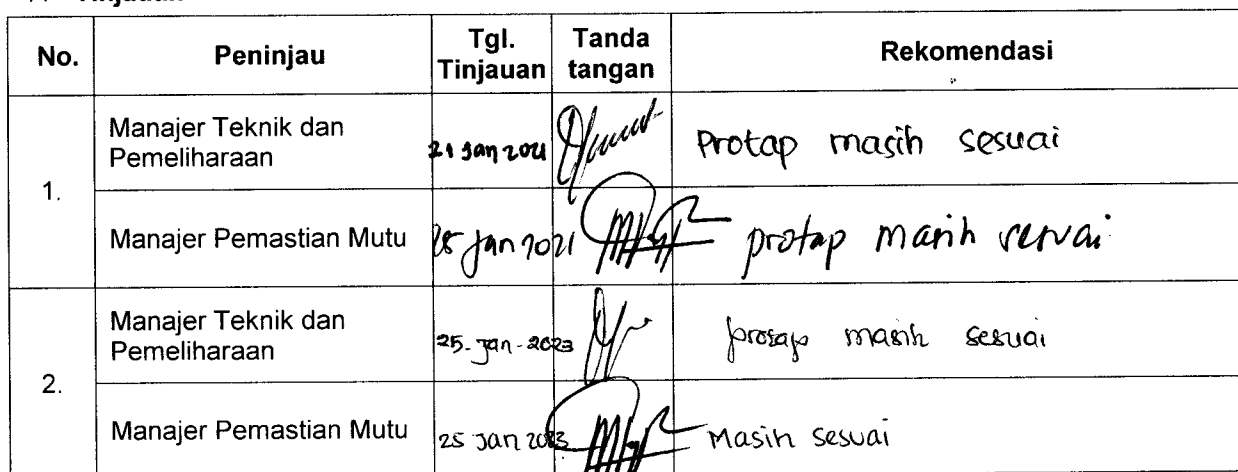 Tinjauan
No. Peninjau Tgl. Tinjauan Tanda tangan Rekomendasi
1.
Manajer Teknik dan Pemeliharaan 21 Jan 2021 Protap masih sesuai
Manajer Pemastian Mutu 25 Jan 2021 protap masih sesuai
2.
Manajer Teknik dan Pemeliharaan 25-Jan-2023 protap masih sesuai
Manajer Pemastian Mutu 25 Jan 2023 Masih sesuai